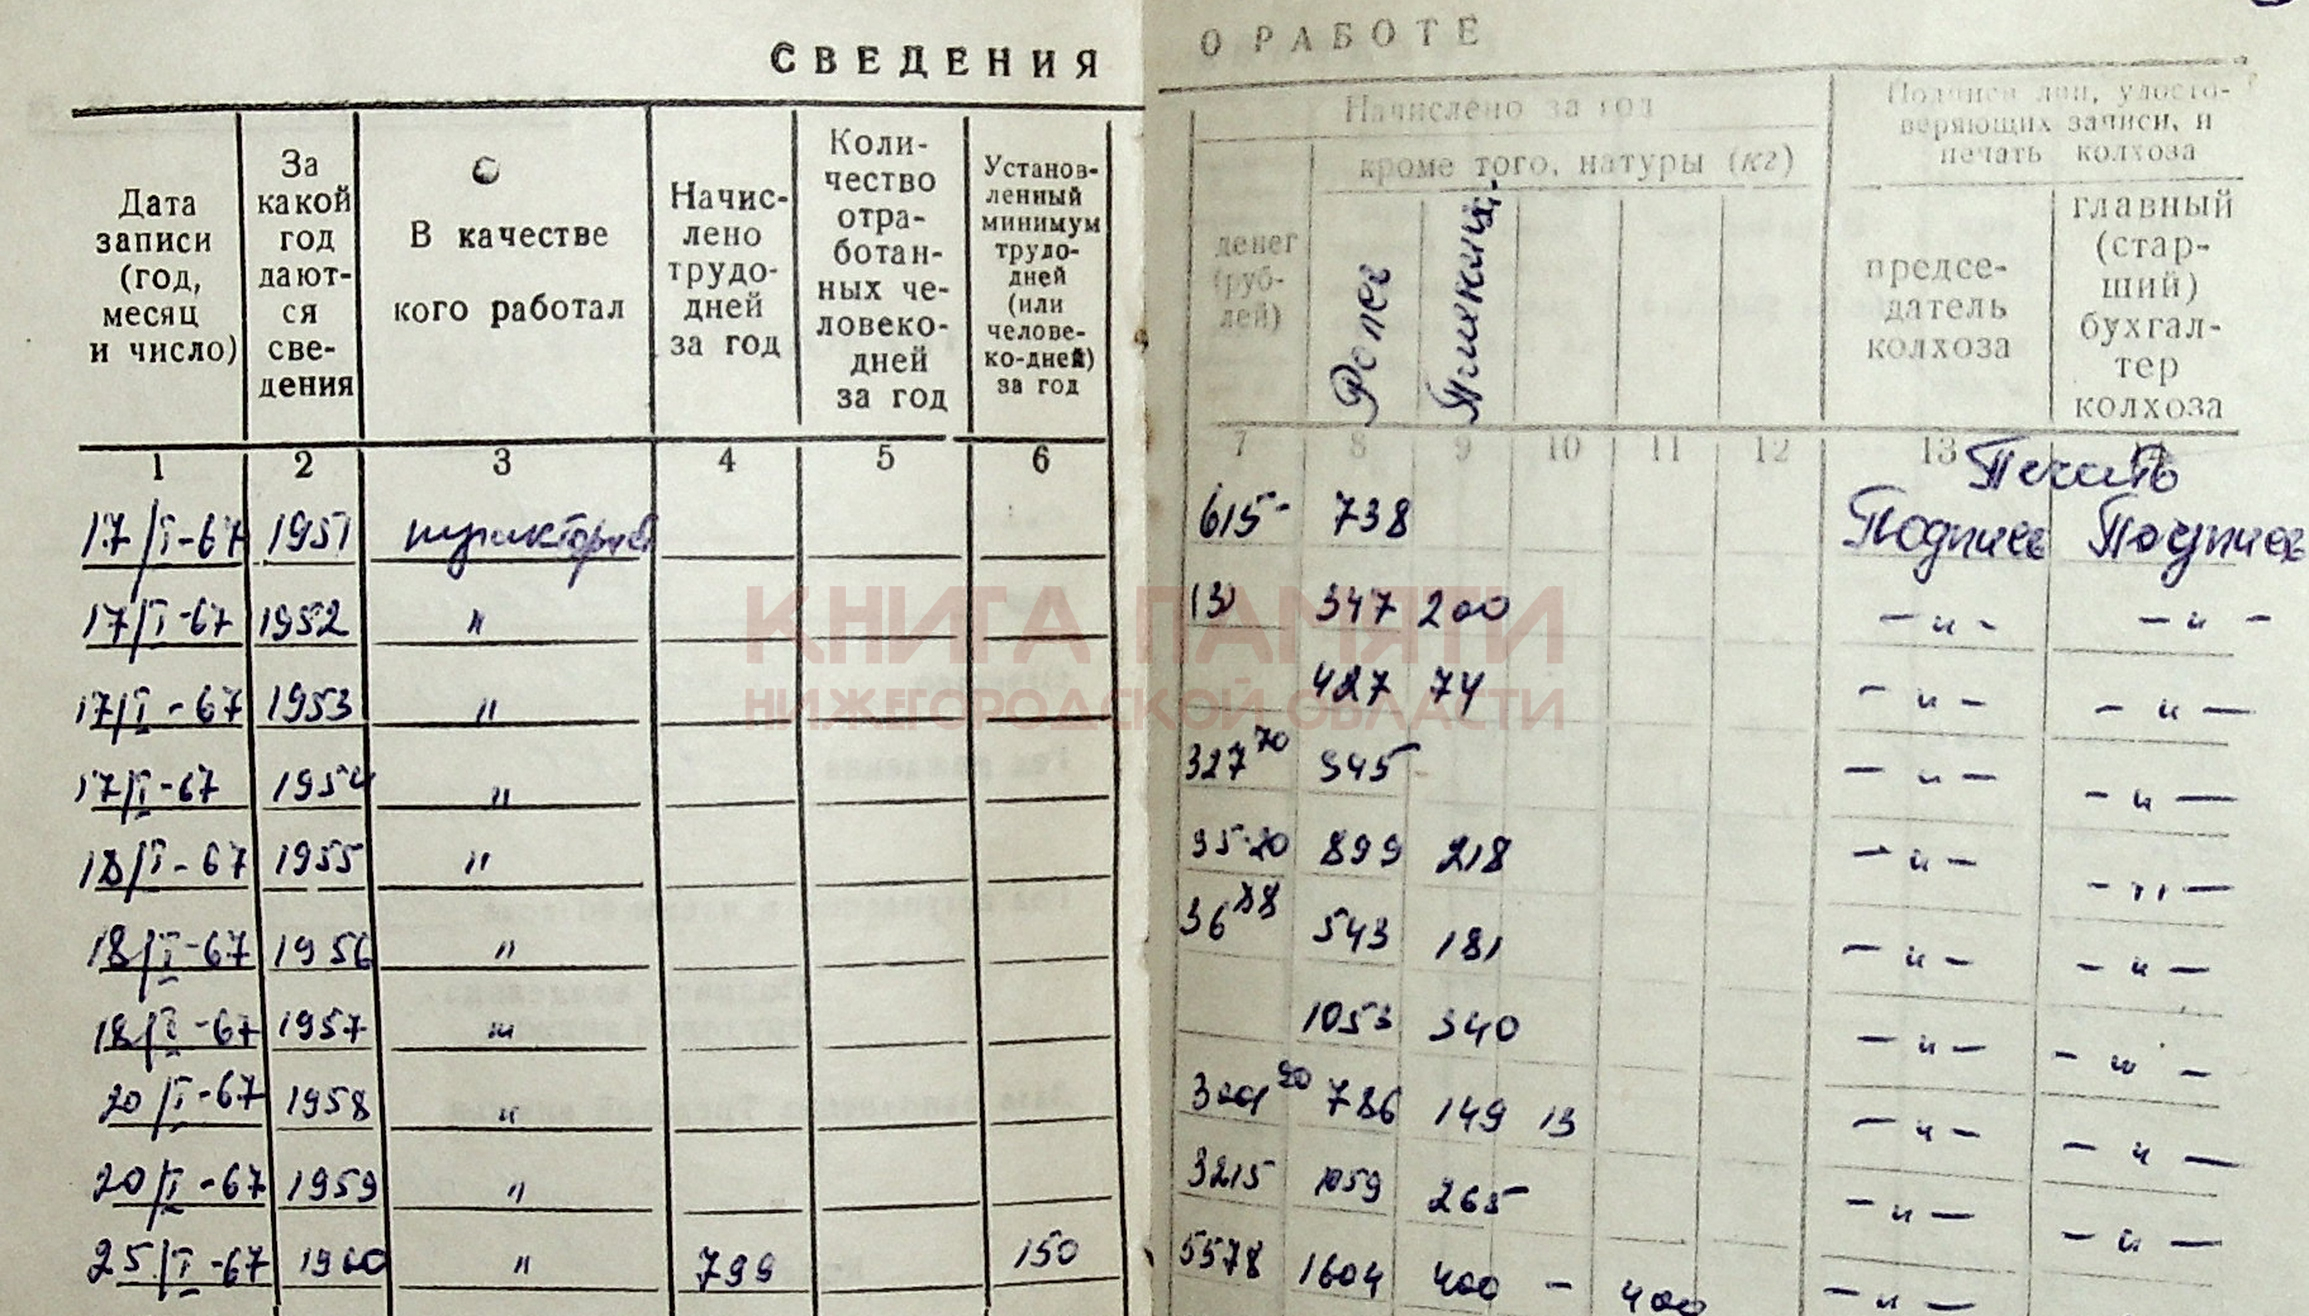 СВЕДЕНИЯ О РАБОТЕ
Дата записи (год, месяц и число)
За какой год даются сведения
В качестве кого работал
Начислено трудодней за год
Количество отработанных человеко-дней за год
Установленный минимум трудодней (или человеко-дней) за год
Начислено за год
денег (рублей)
кроме того, натуры (кг)
Подписи лиц, удостоверяющих записи, и печать колхоза
председатель колхоза
главный (старший) бухгалтер колхоза
1 2 3 4 5 6 7 8 9 10 11 12 13
Печать
17/I-67 1951 615- 738 Подписи Подписи
17/I-67 1952 " 347 200 -"- -"-
17/I-67 1953 " 427 74 -"- -"-
17/I-67 1954 " 327 70 945 -"- -"-
18/I-67 1955 " 95-20 899 218 -"- -"-
18/I-67 1956 " 36 88 543 181 -"- -"-
18/I-67 1957 " 1053 340 -"- -"-
20/I-67 1958 " 786 149 13 -"- -"-
20/I-67 1959 " 3215 1059 265 -"- -"-
25/I-67 1960 " 799 150 5578 1604 400 - 400 -"-
КНИГА ПАМЯТИ
НИЖЕГОРОДСКОЙ ОБЛАСТИ